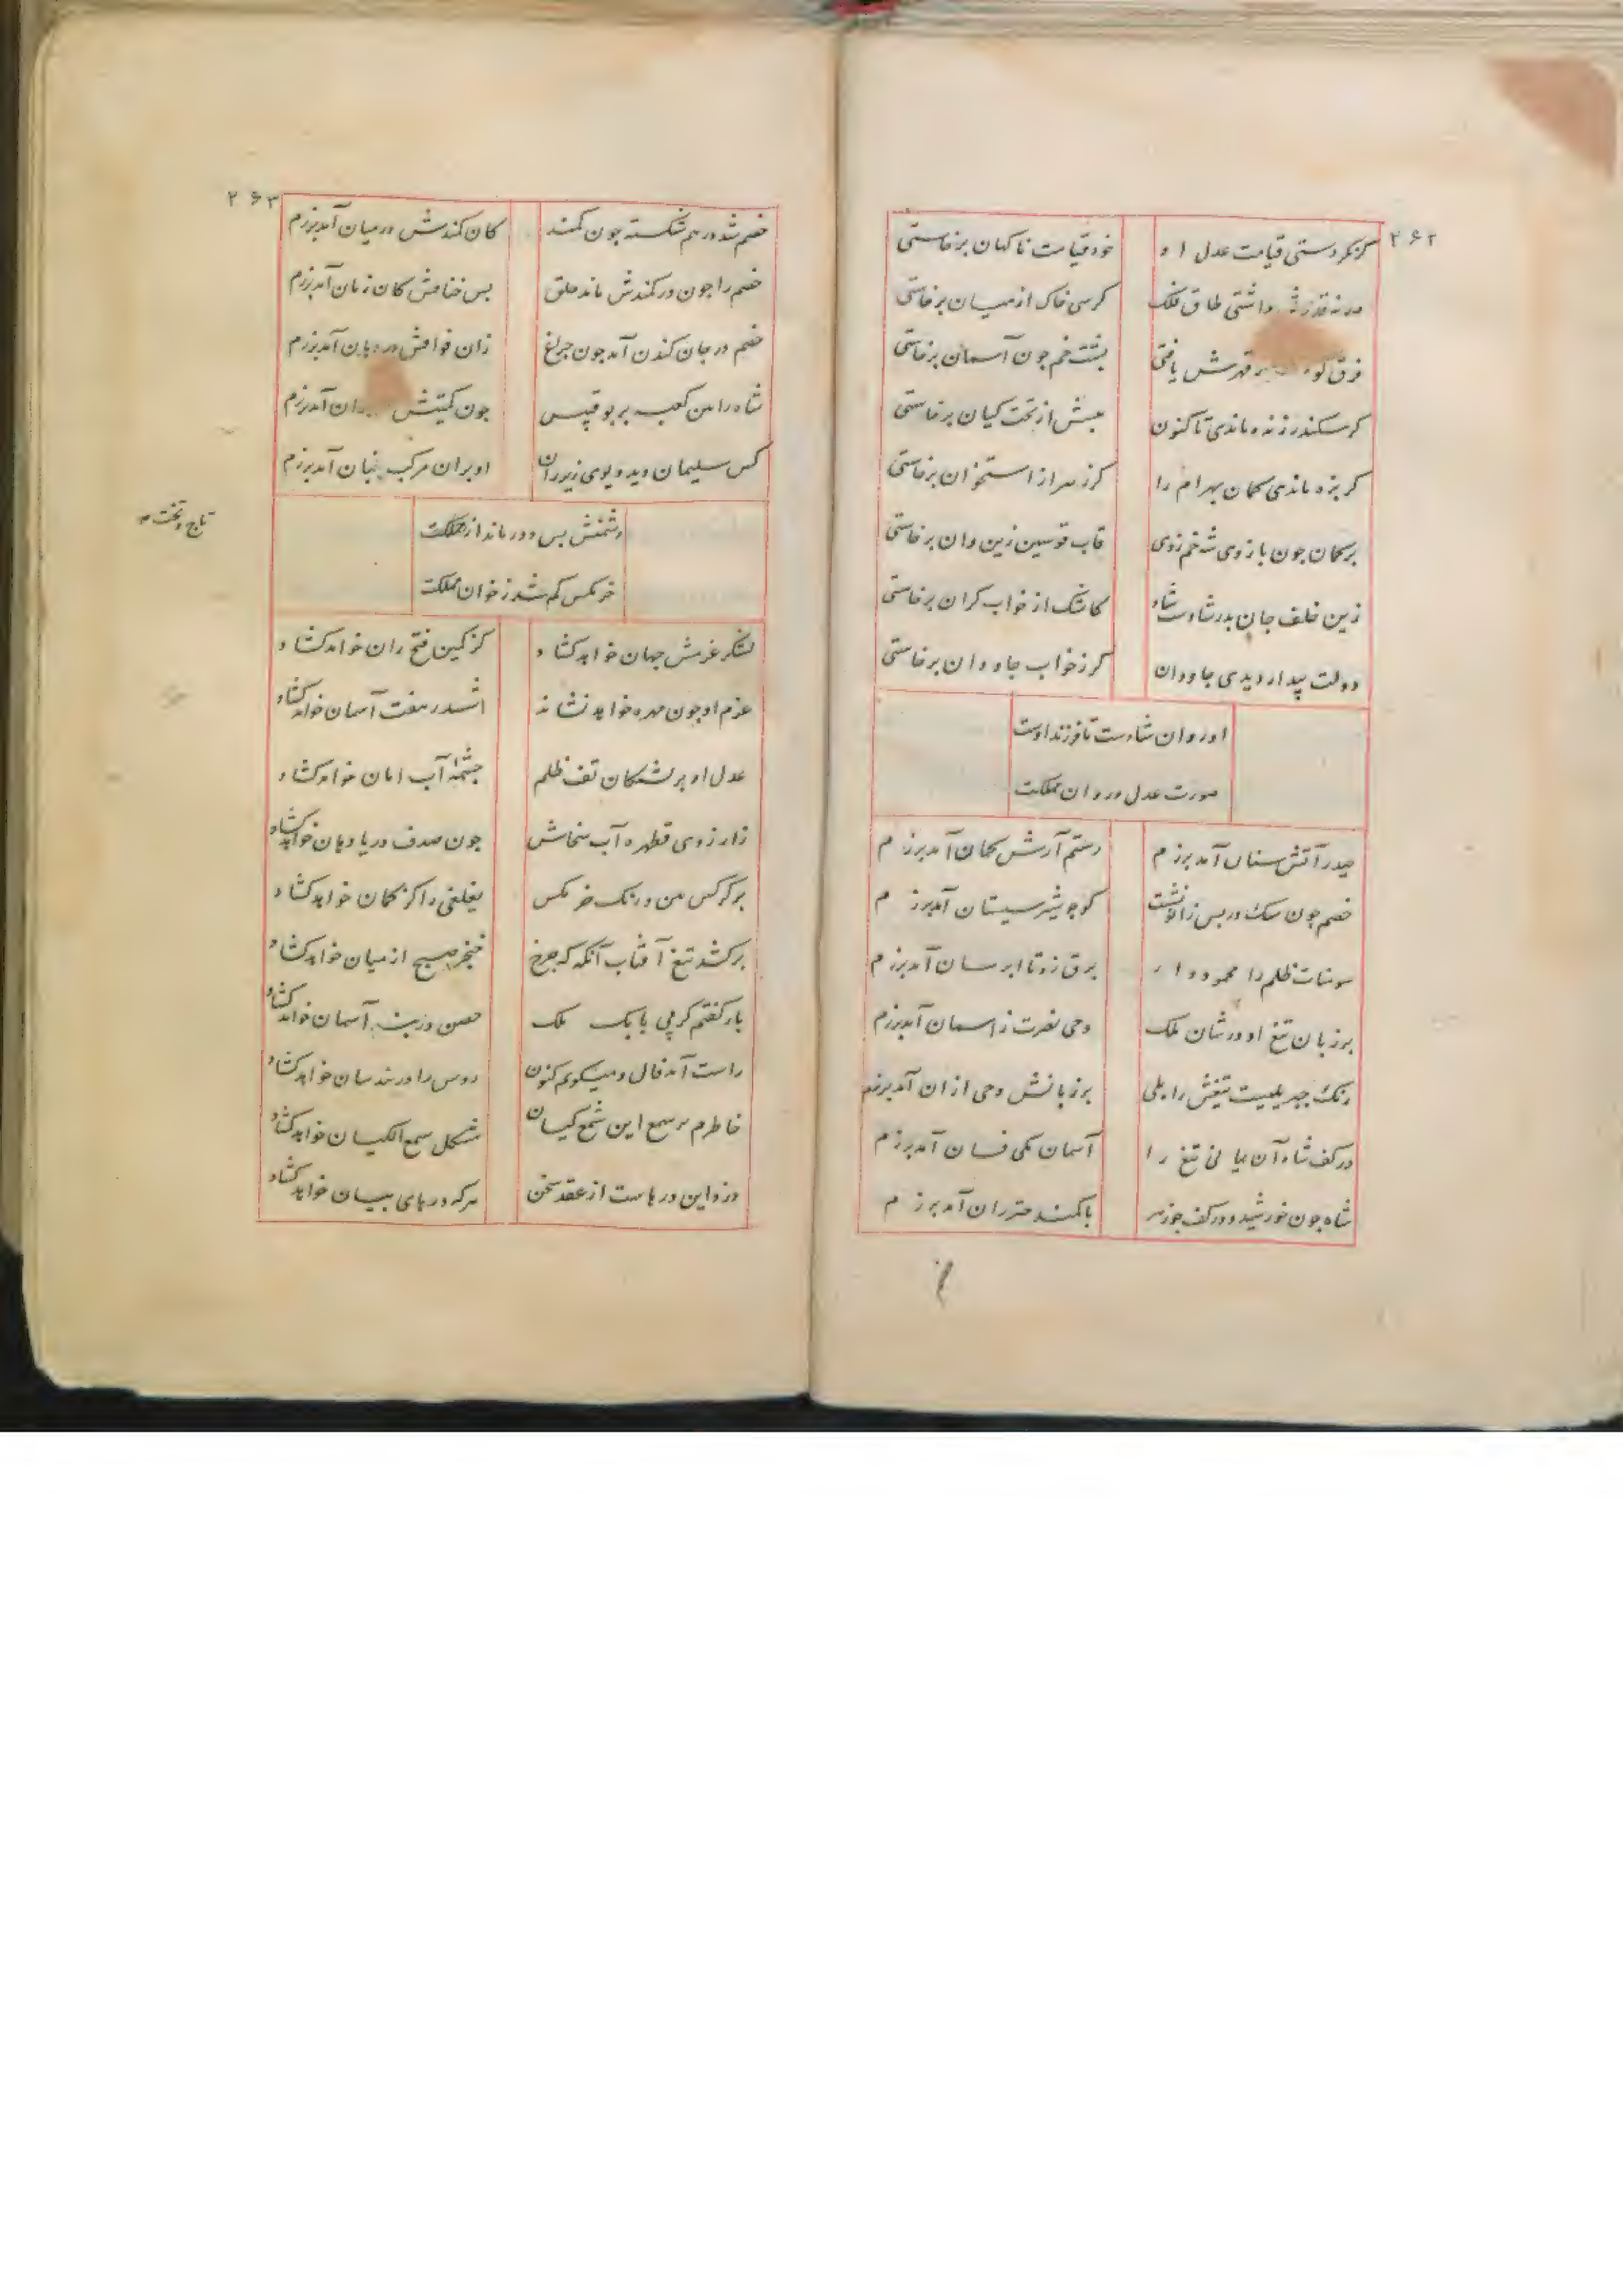 ۲۶۲
گر نکردستی قیامت عدل او خود قیامت ناکهان برخاستی
داشتی طاق فلک کرسی خاک از میان برخاستی
فرق قهرش یافتی پشت خم چون آسمان برخاستی
کر سکندر زنده ماندی تاکنون پیشش از تخت کیان برخاستی
کر بزه ماندی کمان بهرام را کرز سر از استخوان برخاستی
بر کمان چون بازوی شه خم زدی قاب قوسین زین و آن برخاستی
زین خلف جان پدر شادست شاد کاشک از خواب کران برخاستی
دولت بیدار دیدی جاودان کر ز خواب جاودان برخاستی
او روان شاه‌ست تا فرزند اوست
صورت عدل در روان مملکت
حیدر آتش سنان آمد برزم رستم آرش کمان آمد برزم
خصم چون سک در پس زانو نشست کو چو شیر سیستان آمد برزم
سومنات ظلم را محمود وار برق زد تا ابر سان آمد برزم
بر زبان تیغ او در شان ملک وحی نصرت ز آسمان آمد برزم
رنک جبریلیست تیغش را بلی بر زبانش وحی از آن آمد برزم
در کف شاه آن یمانی تیغ را آسمان مکی فسان آمد برزم
شاه چون خورشید و در کف جوزهر با کمند خیزران آمد برزم
۲۶۳
خصم شد در هم شکسته چون کمند کان کمندش در میان آمد برزم
خصم را چون در کمندش ماند حلق پس خناقش کان زمان آمد برزم
خصم در جان کندن آمد چون چراغ زان فواقش در دهان آمد برزم
شاه را بین کعبه بر بوقبیس چون کمیتش آمد برزم
کس سلیمان دید دیوی زیر ران او بران مرکب بنان آمد برزم
دشمنش بس دور ماند از مملکت
تاج و تخت
خرمکس کم شد ز خوان مملکت
لشکر عزمش جهان خواهد کشاد کز کمین فتح ران خواهد کشاد
عزم او چون مهره خواهد نشاند ششدر هفت آسمان خواهد کشاد
عدل او بر تشنکان تف ظلم چشمهٔ آب امان خواهد کشاد
ز آرزوی قطره آب سخاش چون صدف دریا دهان خواهد کشاد
بر کرکس من و رنک خرمکس یغلغی را کز کمان خواهد کشاد
برکشد تیغ آفتاب آنکه که چرخ خنجر صبح از میان خواهد کشاد
بار کفتم کر پی بابک ملک حصن در آسمان خواهد کشاد
راست آمد فال و میکویم کنون روس را در بند سان خواهد کشاد
خاطرم بر سمع این شمع کیان مشکل سمع الکیان خواهد کشاد
دزد این درهاست از عقد سخن هر که درهای بیان خواهد کشاد